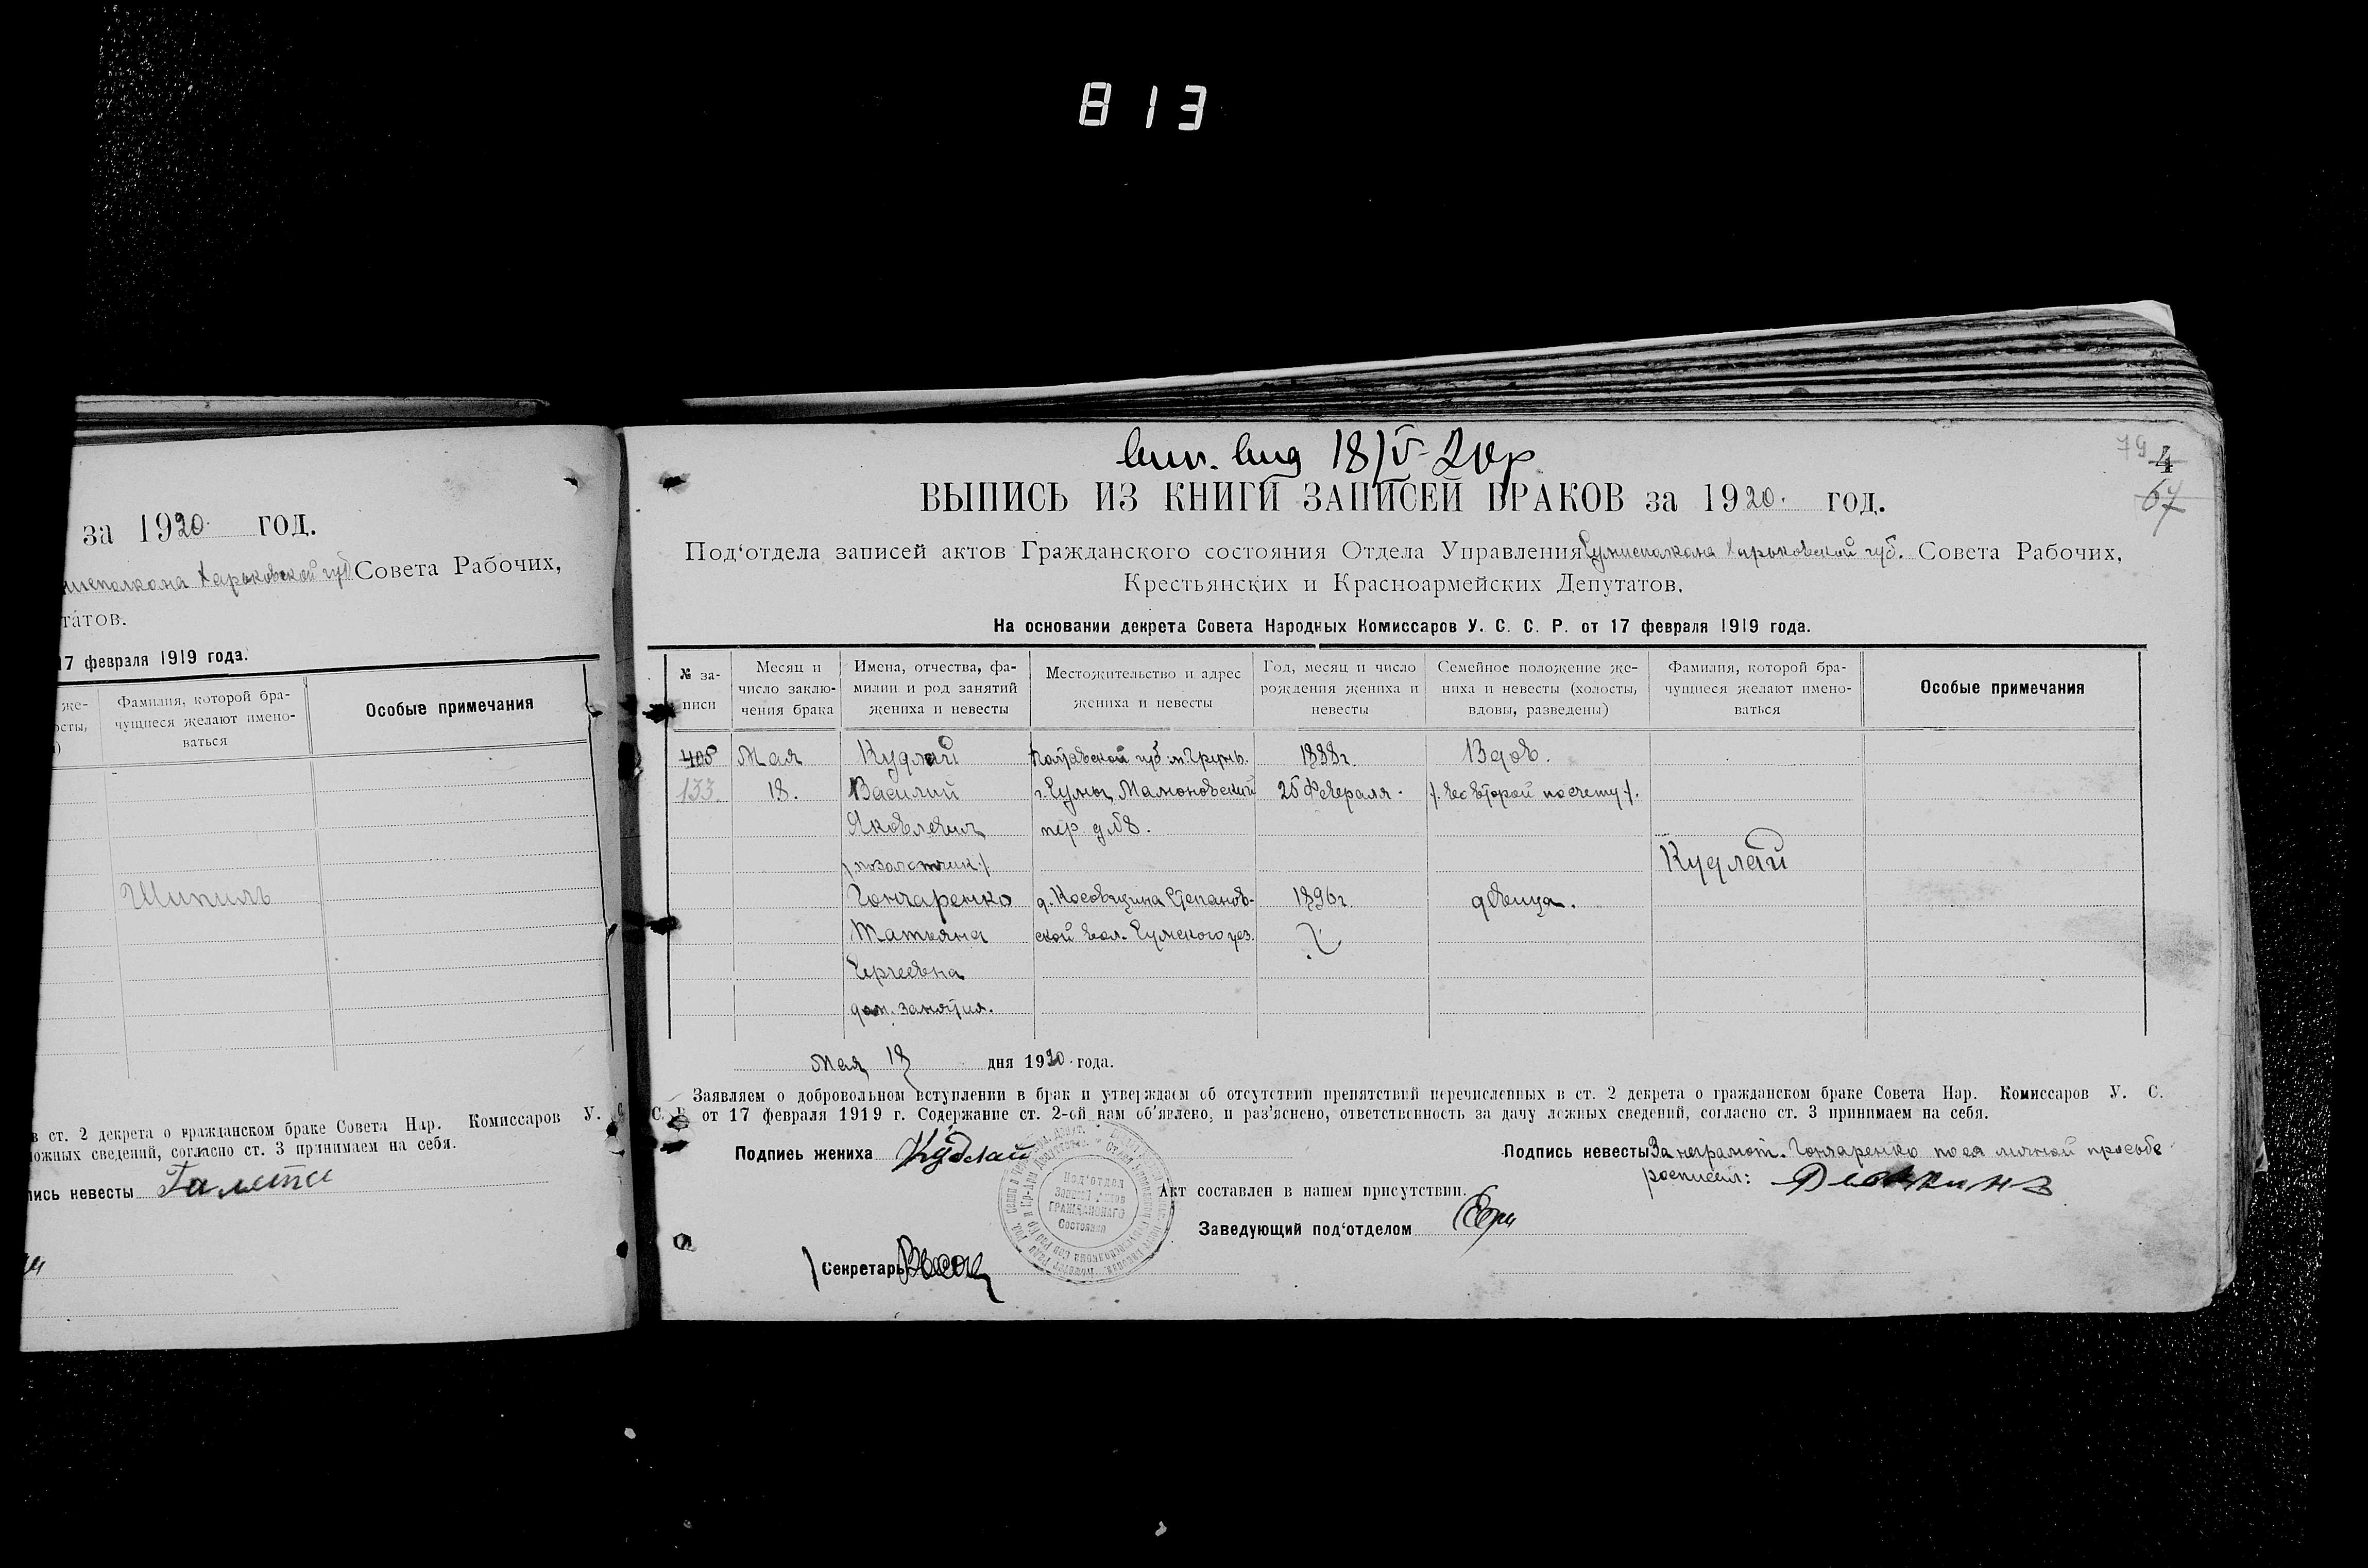 813
за 1920 год.
исполкома Харьковской губ Совета Рабочих,
татов.
17 февраля 1919 года.
же-
Фамилия, которой бра-
чущиеся желают имено-
ваться
Особые примечания
Шипиль
в ст. 2 декрета о гражданском браке Совета Нар. Комиссаров У. С.
ложных сведений, согласно ст. 3 принимаем на себя.
пись невесты
18/V-20
79 4
67
ВЫПИСЬ ИЗ КНИГИ ЗАПИСЕЙ БРАКОВ за 1920. год.
Под'отдела записей актов Гражданского состояния Отдела Управления Сумисполкома Харьковской губ. Совета Рабочих,
Крестьянских и Красноармейских Депутатов.
На основании декрета Совета Народных Комиссаров У. С. С. Р. от 17 февраля 1919 года.
№ за-
писи
Месяц и
число заклю-
чения брака
Имена, отчества, фа-
милии и род занятий
жениха и невесты
Местожительство и адрес
жениха и невесты
Год, месяц и число
рождения жениха и
невесты
Семейное положение же-
ниха и невесты (холосты,
вдовы, разведены)
Фамилия, которой бра-
чущиеся желают имено-
ваться
Особые примечания
405 Мая Кудлай Полтавской губ м. Грунь. 1888г. Вдов.
133 18. Василий г. Сумы, Мамоновский 25 Февраля. /. во второй по счету /.
Яковлевич пер. д №8.
/позолотчик/ Кудлай
Гончаренко д. Косовщина Степанов- 1896г. девица.
Татьяна ской вол. Сумского уез.
Сергеевна
дом. занятия.
Мая 18 дня 1920. года.
Заявляем о добровольном вступлении в брак и утверждаем об отсутствии препятствий перечисленных в ст. 2 декрета о гражданском браке Совета Нар. Комиссаров У. С.
С. Р. от 17 февраля 1919 г. Содержание ст. 2-ой нам об'явлено, и раз'яснено, ответственность за дачу ложных сведений, согласно ст. 3 принимаем на себя.
Подпись жениха Кудлай
Подпись невесты За неграмот. Гончаренко по ея личной просьбе
росписал:
Под'отдел
Записей Актов
ГРАЖДАНСКАГО
Состояния
Акт составлен в нашем присутствии.
Заведующий под'отделом
Секретарь